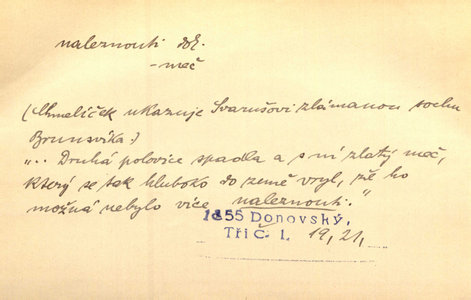 naleznouti dok.
- meč
(Chmelíček ukazuje Svarušovi zlámanou sochu
Brunsvíka.)
".. Druhá polovice spadla a s ní zlatý meč,
který se tak hluboko do země vryl, že ho
možná nebylo více naleznouti."
1855 Donovský,
Tři Č. 1. 19, 21,